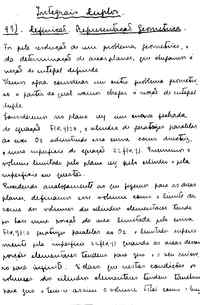 Integrais duplos
99). Definição. Representação Geométrica.
Foi pela resolução de um problema geométrico, o
da determinação de áreas planas, que chegamos à
noção de integral definido.
Vamos agora considerar um outro problema geométri-
co a partir do qual vamos chegar à noção de integral
duplo.
Consideremos no plano xy uma curva fechada
de equação F(x,y)=0, o cilindro de geratrizes paralelas
ao eixo Oz admitindo essa curva como directriz,
e uma superfície de equação z=f(x,y). Procuremos o
volume limitado pelo plano xy pelo cilindro e pela
superfície em questão.
Procedendo analogamente ao que fizemos para as áreas
planas, definiremos esse volume como o limite da
soma dos volumes de cilindros elementares tendo
por base uma porção da área limitada pela curva
F(x,y)=0 geratrizes paralelas ao Oz e limitados superior-
mente pela superfície z=f(x,y) quando as áreas dessas
porções elementares tendem para zero, e o seu número
para infinito. É claro que nestas condições os
volumes dos cilindros elementares tendem também
para zero